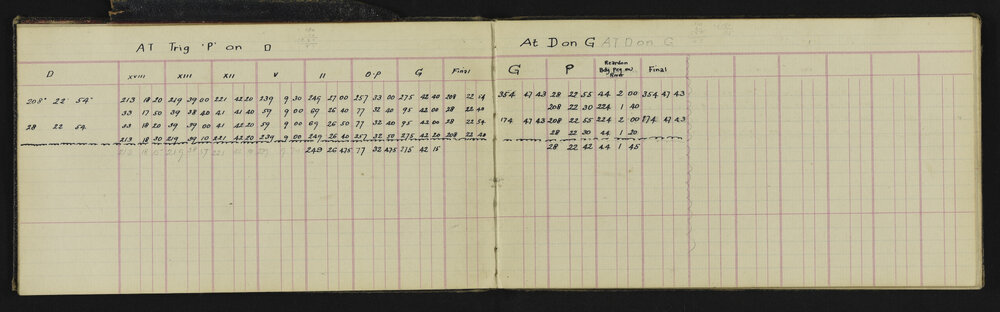 AT Trig 'P' on D
D XVIII XIII XII V II O.P G Final
208° 22 54" 213 18 20 219 39 00 221 42 20 239 9 30 249 27 00 257 33 00 275 42 40 208 22 54
33 17 50 39 38 40 41 41 40 59 9 00 69 26 40 77 32 40 95 42 00 28 22 40
28 22 54 33 18 20 39 39 00 41 42 20 59 9 00 69 26 50 77 32 40 95 42 00 28 22 54
213 18 30 219 39 10 221 42 20 239 9 00 249 26 40 257 32 50 275 42 20 208 22 40
249 26 475 77 32 475 275 42 15
At D on G AT D on G
G P Reardon Bdy Peg on River Final
354 47 43 28 22 55 44 2 00 354 47 43
208 22 30 224 1 40
174 47 43 208 22 55 224 2 00 174 47 43
28 22 30 44 1 20
28 22 42 44 1 45